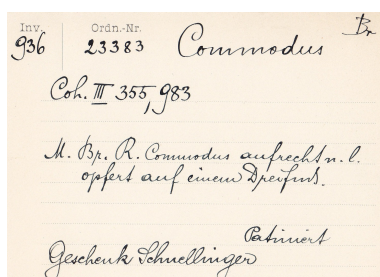 Inv. Ordn.-Nr. Br
936 23383 Commodus
Coh. III 355,983
M. Br. R. Commodus aufrecht n. l.
opfert auf einem Dreifuß.
Patiniert
Geschenk Schnellinger